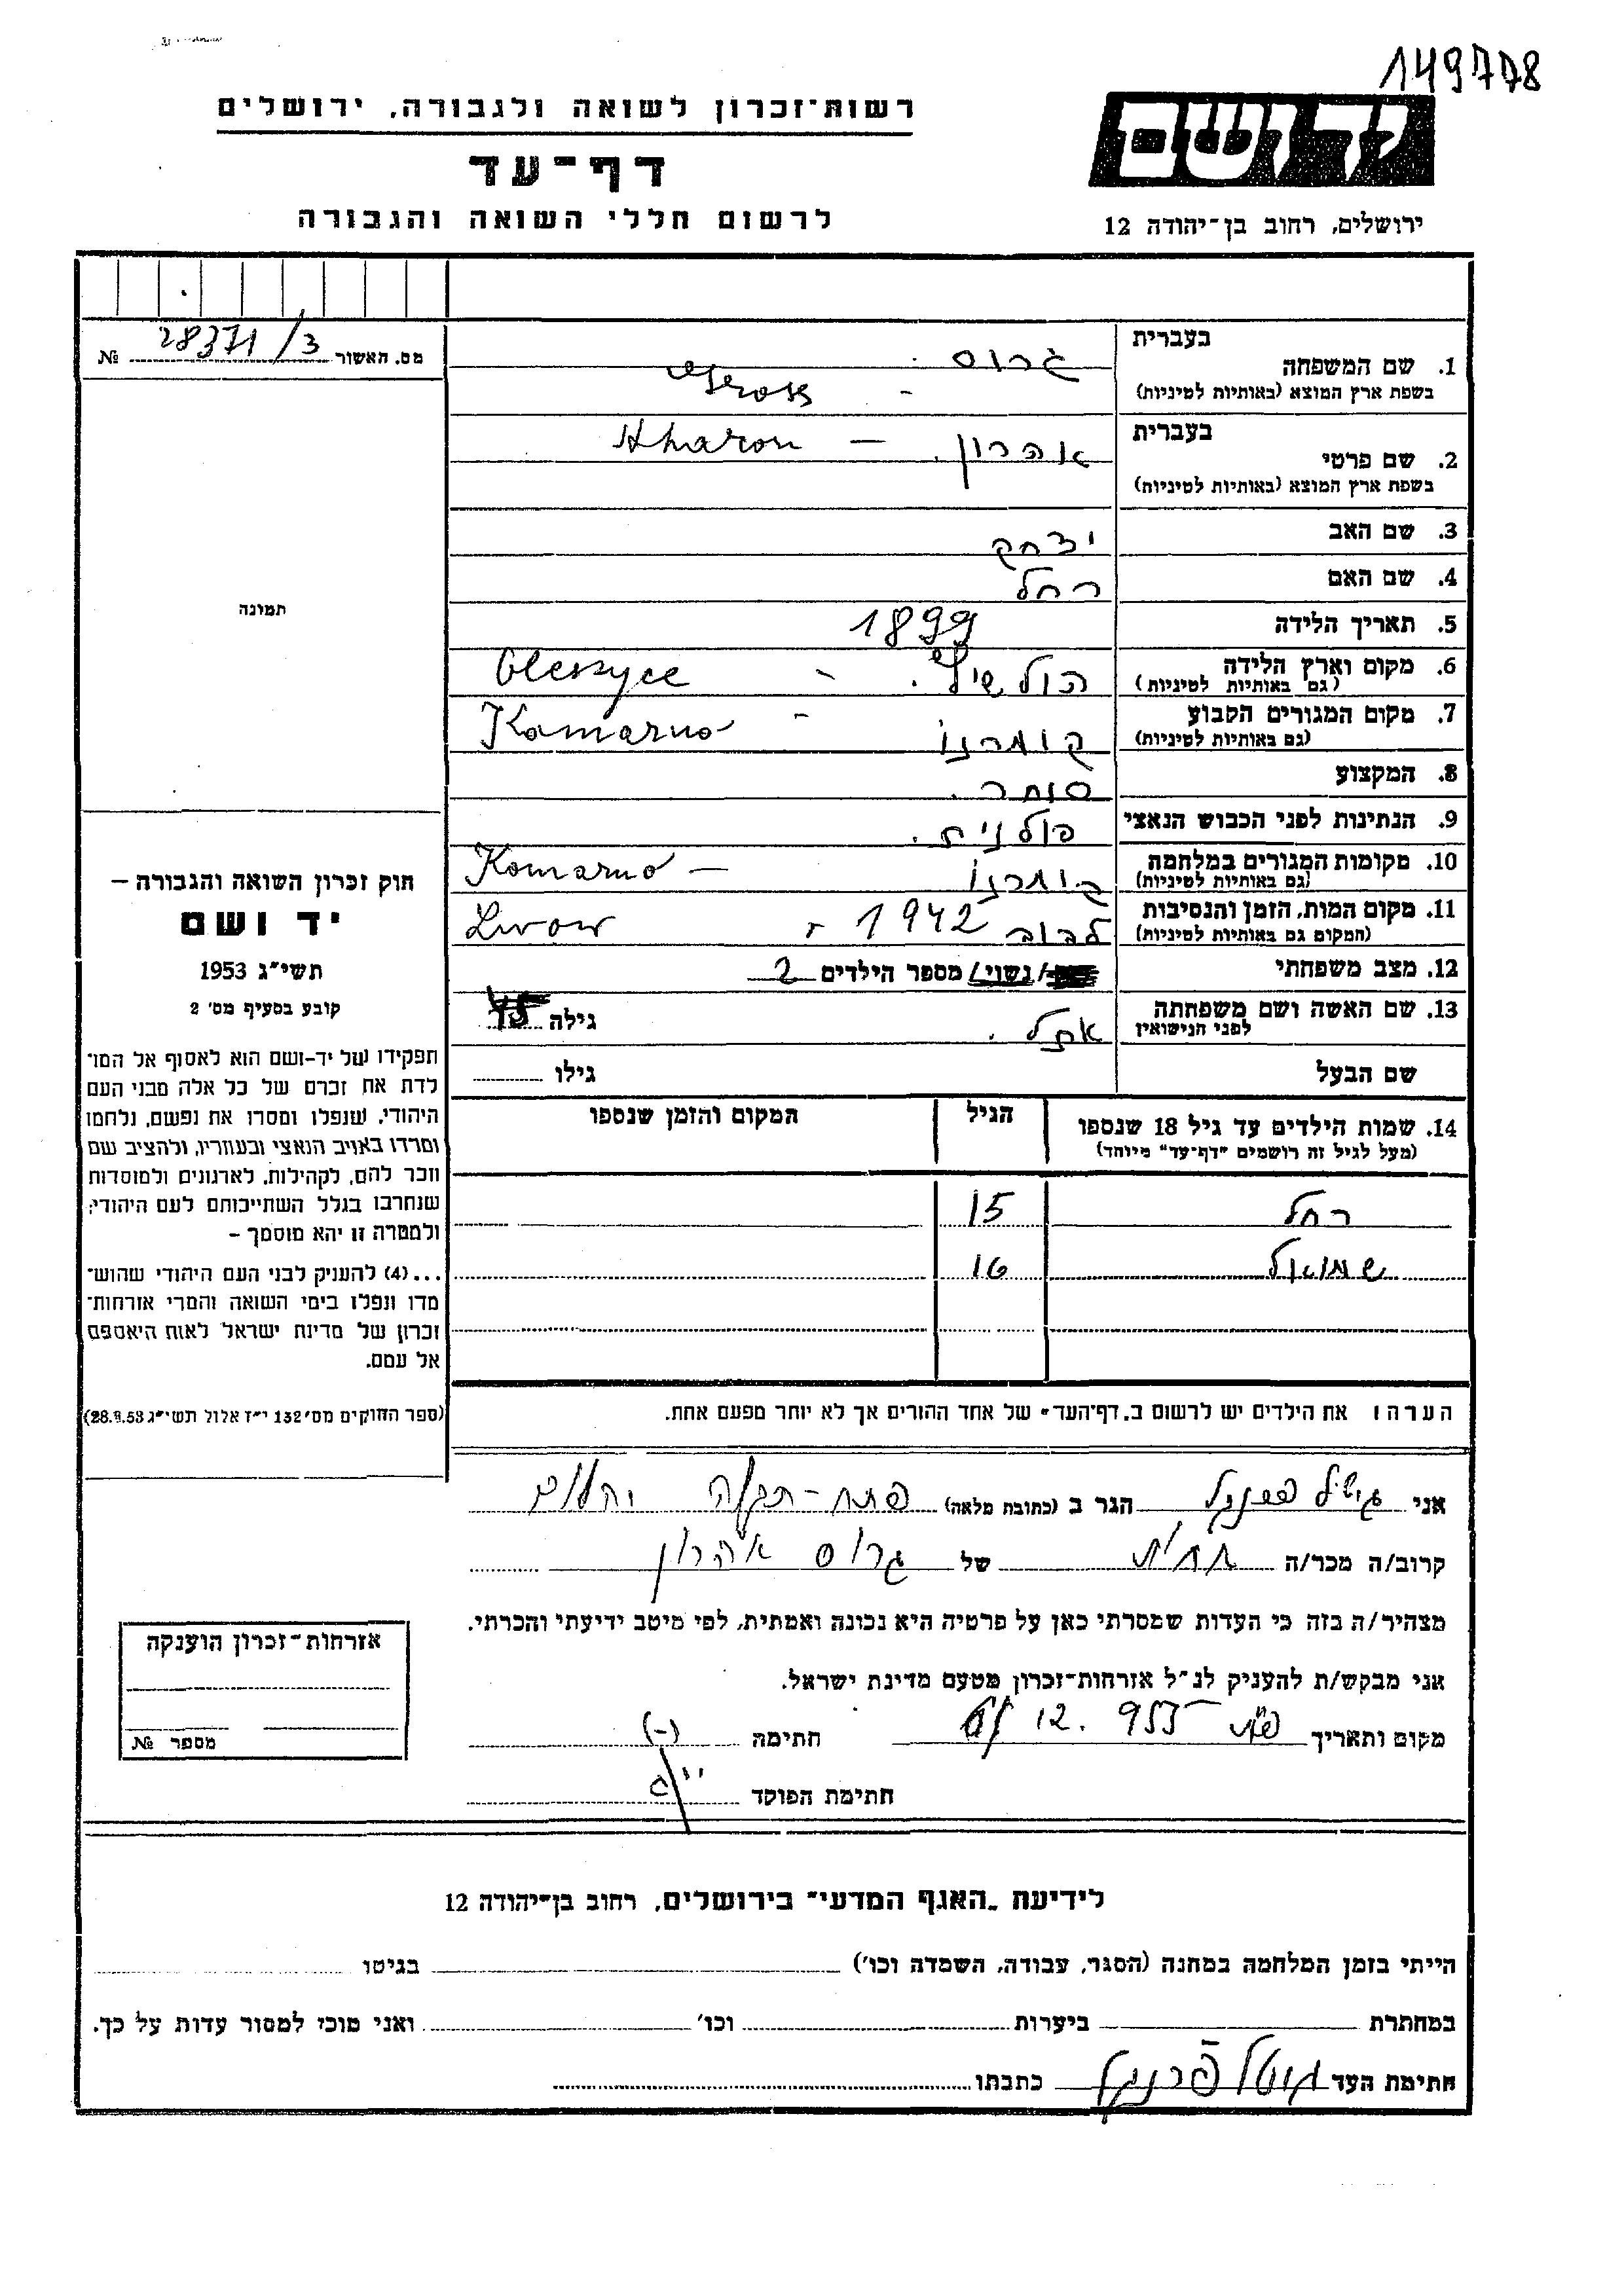 149778
רשות־זכרון לשואה ולגבורה, ירושלים
דף־עד
לרשום חללי השואה והגבורה
יד ושם
ירושלים, רחוב בן־יהודה 12
מס. האשור 28371/3 №
בעברית
1. שם המשפחה גרוס.
בשפת ארץ המוצא (באותיות לטיניות) Gross
בעברית
2. שם פרטי אהרון. — Aharon
בשפת ארץ המוצא (באותיות לטיניות)
3. שם האב יצחק
4. שם האם רחל
5. תאריך הלידה 1899
6. מקום וארץ הלידה
(גם באותיות לטיניות) Oleszyce
7. מקום המגורים הקבוע קומרנו - Komarno
(גם באותיות לטיניות)
8. המקצוע סוחר.
9. הנתינות לפני הכבוש הנאצי פולנית.
10. מקומות המגורים במלחמה קומרנו Komarno —
(גם באותיות לטיניות)
11. מקום המות, הזמן והנסיבות לבוב 1942 Lwow
(המקום גם באותיות לטיניות)
12. מצב משפחתי /נשוי/ מספר הילדים 2
13. שם האשה ושם משפחתה אתל. גילה 45
לפני הנישואין
שם הבעל גילו
14. שמות הילדים עד גיל 18 שנספו הגיל המקום והזמן שנספו
(מעל לגיל זה רושמים "דף־עד" מיוחד)
רחל 15
שמואל 16
הערה: את הילדים יש לרשום ב„דף־העד" של אחד ההורים אך לא יותר מפעם אחת.
תמונה
חוק זכרון השואה והגבורה –
יד ושם
תשי"ג 1953
קובע בסעיף מס' 2
תפקידו של יד-ושם הוא לאסוף אל המו־
לדת את זכרם של כל אלה מבני העם
היהודי, שנפלו ומסרו את נפשם, נלחמו
ומרדו באויב הנאצי ובעוזריו, ולהציב שם
וזכר להם, לקהילות, לארגונים ולמוסדות
שנחרבו בגלל השתייכותם לעם היהודי;
ולמטרה זו יהא מוסמך –
...(4) להעניק לבני העם היהודי שהוש־
מדו ונפלו בימי השואה והמרי אזרחות־
זכרון של מדינת ישראל לאות היאספם
אל עמם.
(ספר החוקים מס' 132 י"ז אלול תשי"ג 28.8.53)
אני פרנקל הגר ב (כתובת מלאה) פתח-תקוה
קרוב/ה מכר/ה של גרוס אהרון
מצהיר/ה בזה כי העדות שמסרתי כאן על פרטיה היא נכונה ואמתית, לפי מיטב ידיעתי והכרתי.
אני מבקש/ת להעניק לנ"ל אזרחות־זכרון מטעם מדינת ישראל.
מקום ותאריך 12. 955 חתימה (-)
חתימת הפוקד
אזרחות־זכרון הוענקה
מספר №
לידיעת „האגף המדעי" בירושלים, רחוב בן־יהודה 12
הייתי בזמן המלחמה במחנה (הסגר, עבודה, השמדה וכו') בגיטו
במחתרת ביערות וכו' ואני מוכן למסור עדות על כך.
חתימת העד פרנקל כתבתו